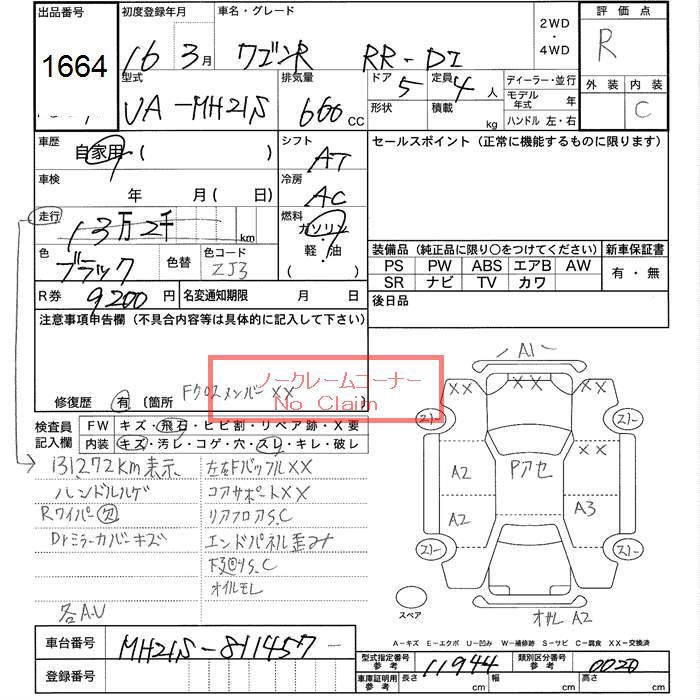 出品番号 初度登録年月 車名・グレード 2WD・4WD 評価点
1664 16 3月 ワゴンR RR-DI R
型式 排気量 ドア 5 定員 4人 ディーラー・並行 外装 内装
UA-MH21S 600cc 形状 積載 kg モデル年式 年 C
ハンドル 左・右
車歴 自家用 ( ) シフト AT セールスポイント (正常に機能するものに限ります)
車検 年 月 ( 日) 冷房 AC
走行 13万2千 km 燃料 ガソリン 軽・油 ( )
色 ブラック 色替 色コード ZJ3 装備品 (純正品に限り○をつけてください) 新車保証書
PS PW ABS エアB AW 有・無
SR ナビ TV カワ
R券 9,200円 名変通知期限 月 日 後日品
注意事項申告欄 (不具合内容等は具体的に記入して下さい)
ノークレームコーナー
No Claim
修復歴 有 (箇所 Fクロスメンバー XX
検査員記入欄 FW キズ・飛石・ヒビ割・リペア跡・X要
内装 キズ・汚レ・コゲ・穴・スレ・キレ・破レ
131,272km表示 左右Fバッフル XX
ハンドルハゲ コアサポート XX
Rワイパー欠 リアフロアS.C
Drミラーカバーキズ エンドパネル歪み
下廻りS.C
オイルモレ
各A.U
A1
XX XX XX
スリー スリー
A2 Pアセ
A2 A3
スリー スリー
スペア オサレ A2
A-キズ E-エクボ U-凹み W-補修跡 S-サビ C-腐食 XX-交換済
車台番号 MH21S-811457-
登録番号
型式指定番号 参考 11944 類別区分番号 参考 0020
車庫証明用 参考 長さ cm 幅 cm 高さ cm